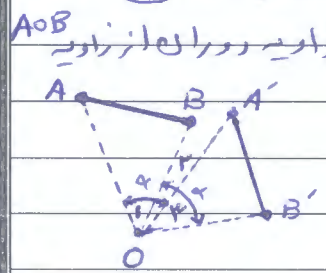 AOB
زاویه دوران از زاویه
A B A′
۲
α α
۱ ۳
B′
O